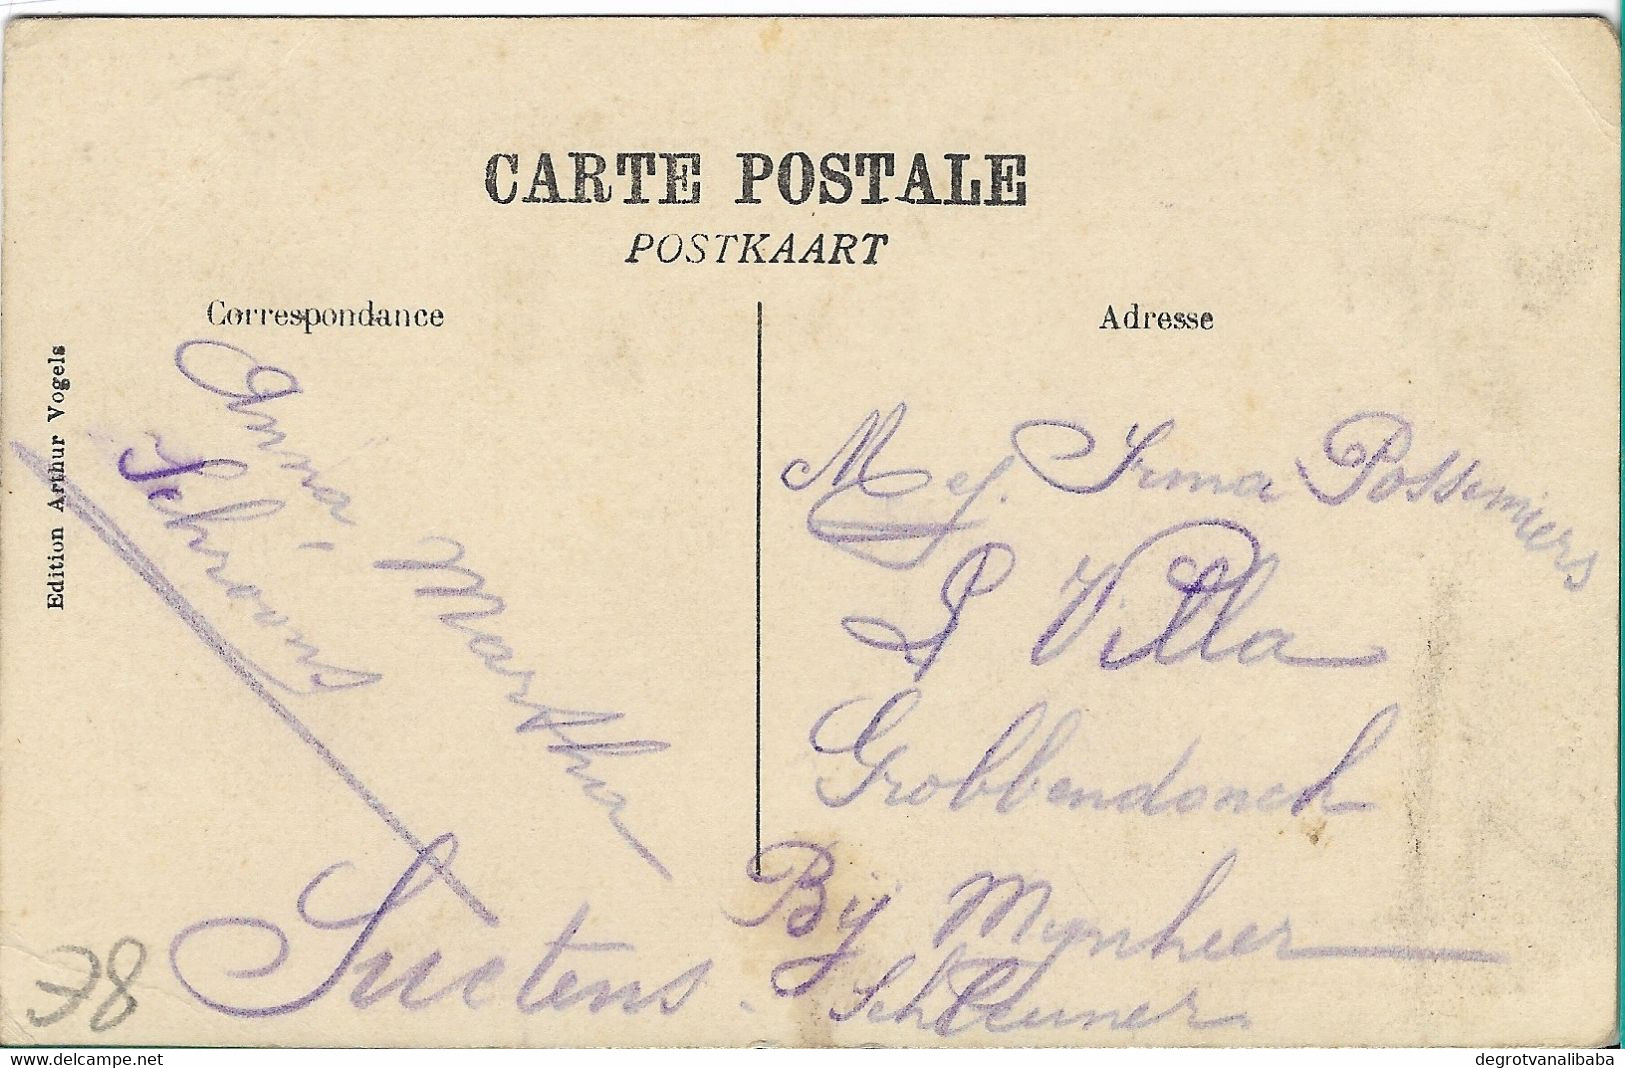 CARTE POSTALE
POSTKAART
Correspondance
Adresse
Edition Arthur Vogels
Anna
Martha
Suetens.
Mej. Irma Possemiers
Villa
Grobbendonck
Bij Mynheer
38
www.delcampe.net
degrotvanalibaba